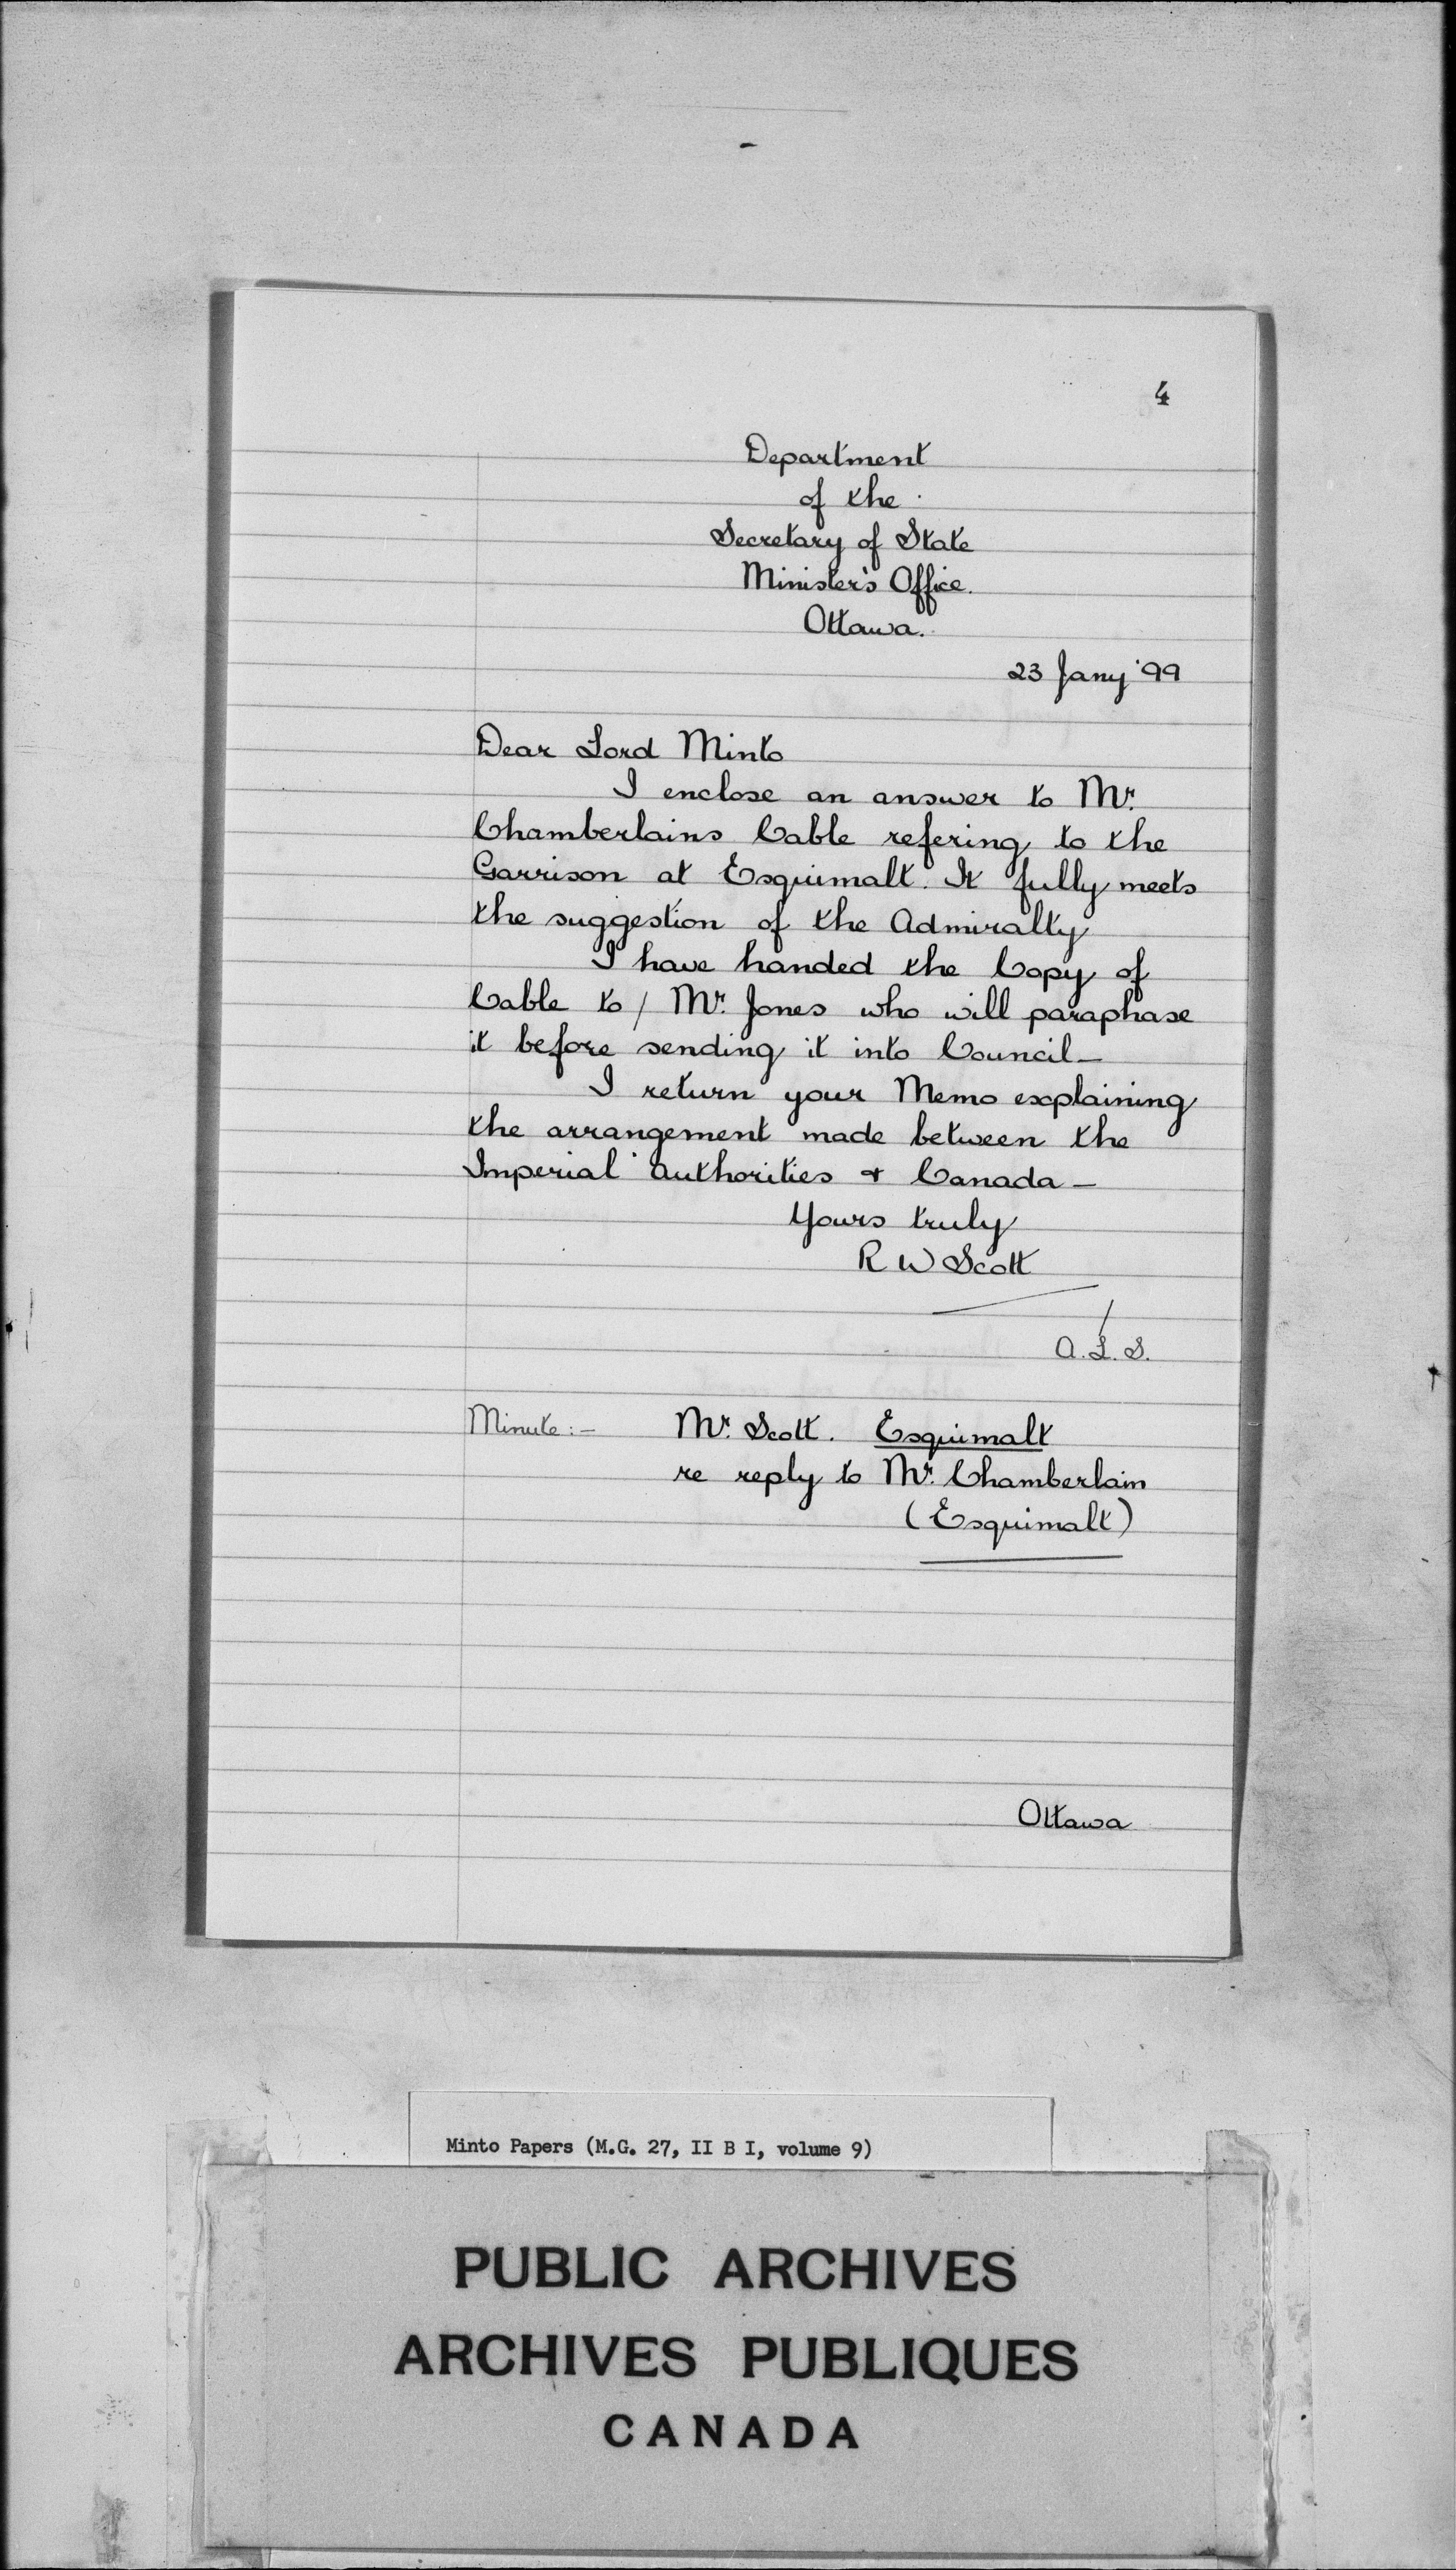 4
Department
of the
Secretary of State
Minister's Office.
Ottawa.
23 Jany '99
Dear Lord Minto
I enclose an answer to Mr.
Chamberlains Cable refering to the
Garrison at Esquimalt. It fully meets
the suggestion of the Admiralty
I have handed the Copy of
Cable to / Mr. Jones who will paraphase
it before sending it into Council—
I return your Memo explaining
the arrangement made between the
Imperial authorities & Canada —
Yours truly
R W Scott
A.L.S.
Minute:— Mr. Scott. Esquimalt
re reply to Mr. Chamberlain
(Esquimalt)
Ottawa
Minto Papers (M.G. 27, II B I, volume 9)
PUBLIC ARCHIVES
ARCHIVES PUBLIQUES
CANADA